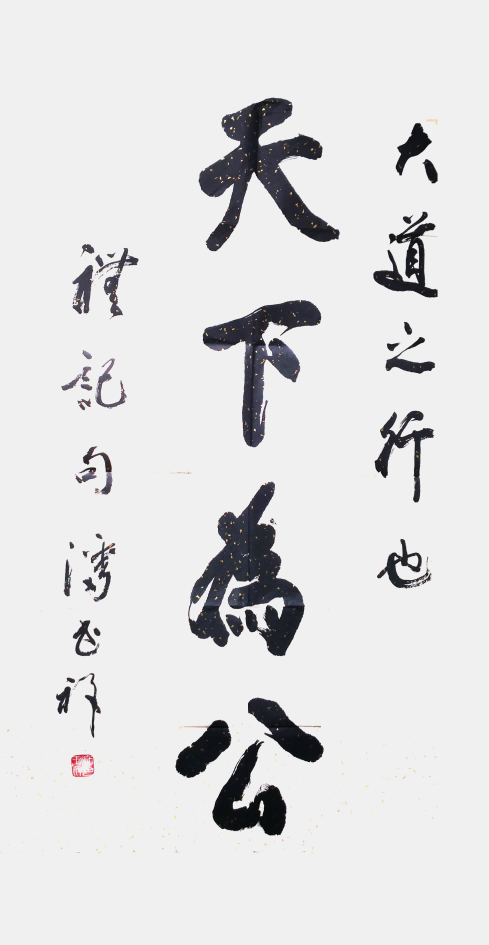 大道之行也
天下為公
禮記句